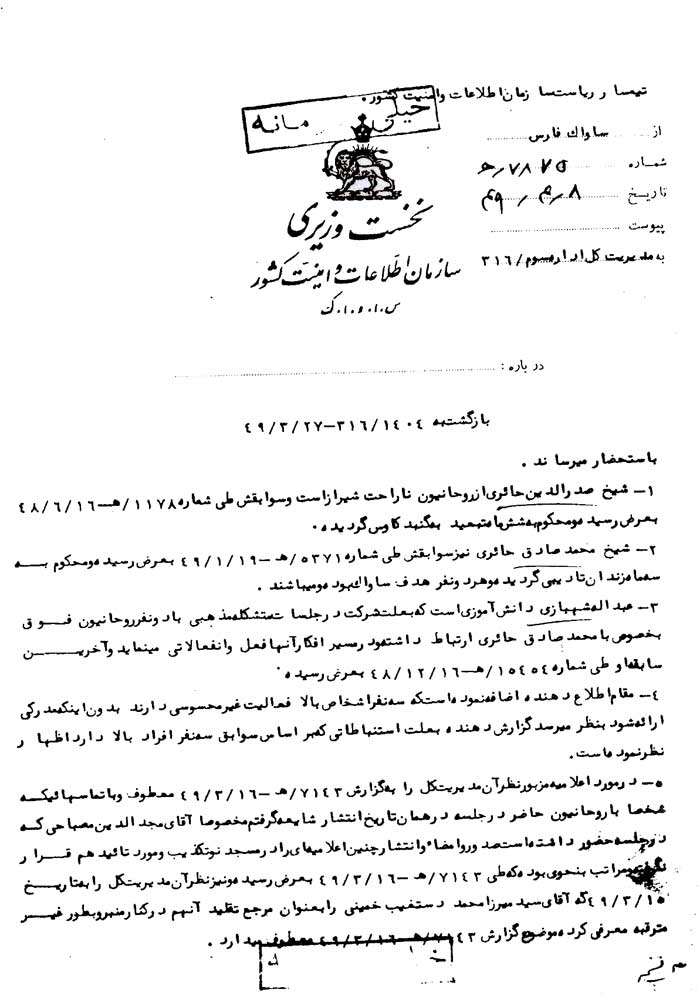 تیمسار ریاست سازمان اطلاعات وامنیت کشور.
خیلی مـانه
از ساواك فارس
شماره ۷۸۷۵/ه
تاریخ ۴۹/۴/۸
پیوست
به مدیریت کل اداره سوم/۳۱۶
نخست وزیری
سازمان اطلاعات و امنیت کشور
س.ا.و.ا.ک
درباره :
بازگشت به ۳۱۶/۱۴۰۴-۴۹/۳/۲۷
باستحضار میرساند.
۱- شیخ صدرالدین حائری از روحانیون ناراحت شیراز است وسوابقش طی شماره ۱۱۷۸/هـ-۴۸/۶/۱۶
بعرض رسیده ومحکوم به شش ماه تبعید به گنبد کاوس گردیده.
۲- شیخ محمد صادق حائری نیز سوابقش طی شماره ۵۳۷۱/هـ-۴۹/۱/۱۹ بعرض رسیده ومحکوم بـــه
سه ماه زندان تادیبی گردیده وهردونفر هدف ساواك بوده ومیباشند.
۳- عبداله شهبازی دانش آموزی است که بعلت شرکت در جلسات متشکله مذهبی با دونفر روحانیون فــوق
بخصوص با محمد صادق حائری ارتباط داشته ودر مسیر افکار آنها فعل وانفعالاتی مینماید وآخریــــن
سابقه او طی شماره ۱۵۴۵۴/هـ-۴۸/۱۲/۱۶ بعرض رسیده.
۴- مقام اطلاع دهنده اضافه نموده است که سه نفر اشخاص بالا فعالیت غیرمحسوسی دارند بدون اینکه مدرکی
ارائه شود بنظر میرسد گزارش دهنده بعلت استنباطاتی که بر اساس سوابق سه نفر افراد بالا دارد اظهار
نظر نموده است.
۵- در مورد اعلامیه مزبور نظر آن مدیریت کل را به گزارش ۷۱۴۳/هـ-۴۹/۳/۱۶ معطوف وبا تماسهائیکه
شخصا با روحانیون حاضر در جلسه در همان تاریخ انتشار شایعه گرفتم مخصوصا آقای مجدالدین مصباحی که
در جلسه حضور داشته است صدور وامضاء وانتشار چنین اعلامیه ای را در مسجد نو تکذیب ومورد تائید هم قرار
نگرفته ومراتب بنحوی بوده که طی ۷۱۴۳/هـ-۴۹/۳/۱۶ بعرض رسیده ونیز نظر آن مدیریت کل را به تاریخ
۴۹/۳/۱۵ که آقای سید میرزا محمد دستغیب خمینی را بعنوان مرجع تقلید آنهم در کنار منبر وبطور غیــر
مترقبه معرفی کرده موضوع گزارش ۷۱۴۳/هـ-۴۹/۳/۱۶ معطوف میدارد.